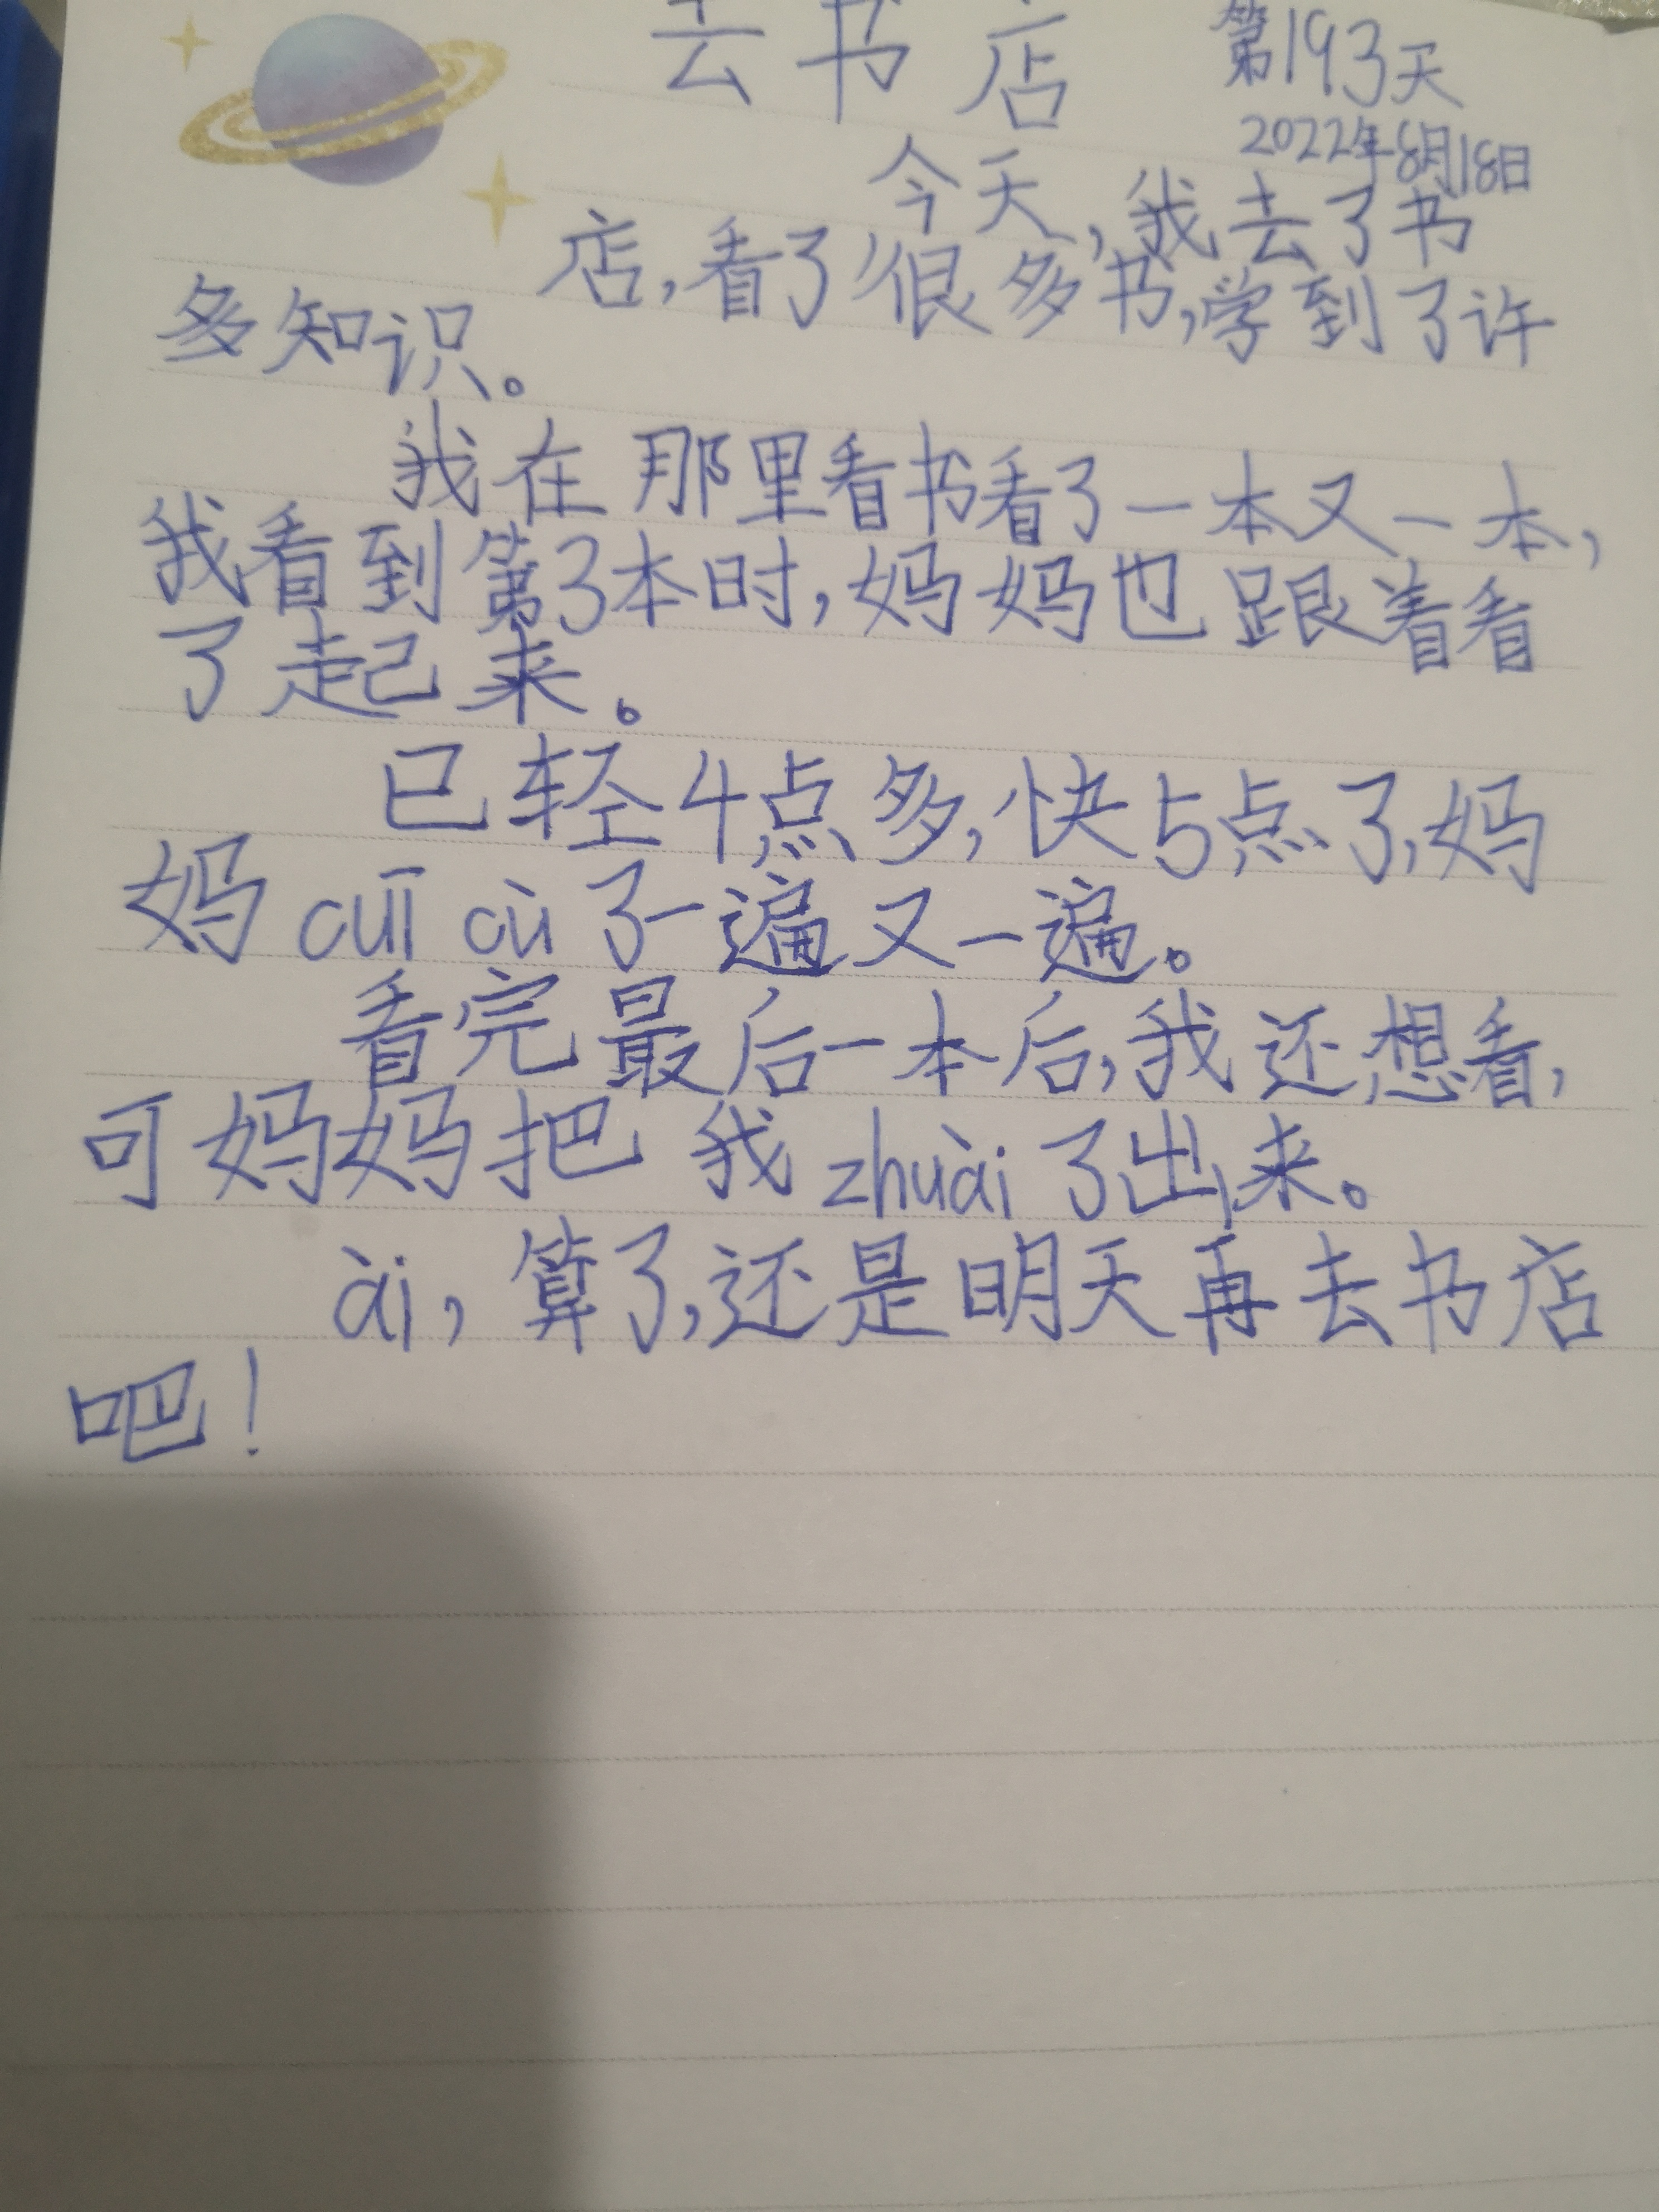 去书店
第193天
2022年8月18日
今天,我去了书
店,看了很多书,学到了许
多知识。
我在那里看书看了一本又一本,
我看到第3本时,妈妈也跟着看
了起来。
已轻4点多,快5点了,妈
妈cuī cù了一遍又一遍。
看完最后一本后,我还想看,
可妈妈把我zhuài了出来。
ài,算了,还是明天再去书店
吧!